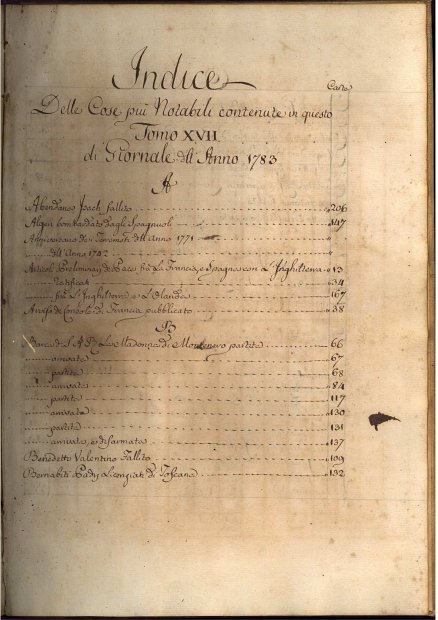 Indice
Carte
Delle Cose più Notabili contenute in questo
Tomo XVII
di Giornale dll Anno 1783
A
Abendanon Joseh fallito 206
Algeri bombardato dagli Spagnuoli 147
Anniversario de Terremoti dll Anno 1771
dll Anno 1742
Articoli Preliminari di Pace frà la Francia, e Spagna con L'Inghilterra 13
34
frà L'Inghilterra e L'Olanda 167
di Francia pubblicato 38
B
Barca di S A R La Madonna di Montenero partita 66
arrivata 67
partita 68
arrivata 84
partita 117
arrivata 130
partita 131
arrivata, e disarmata 137
Benedetto Valentino Fallito 109
Bernabiti Padri Licenziati di Toscana 132